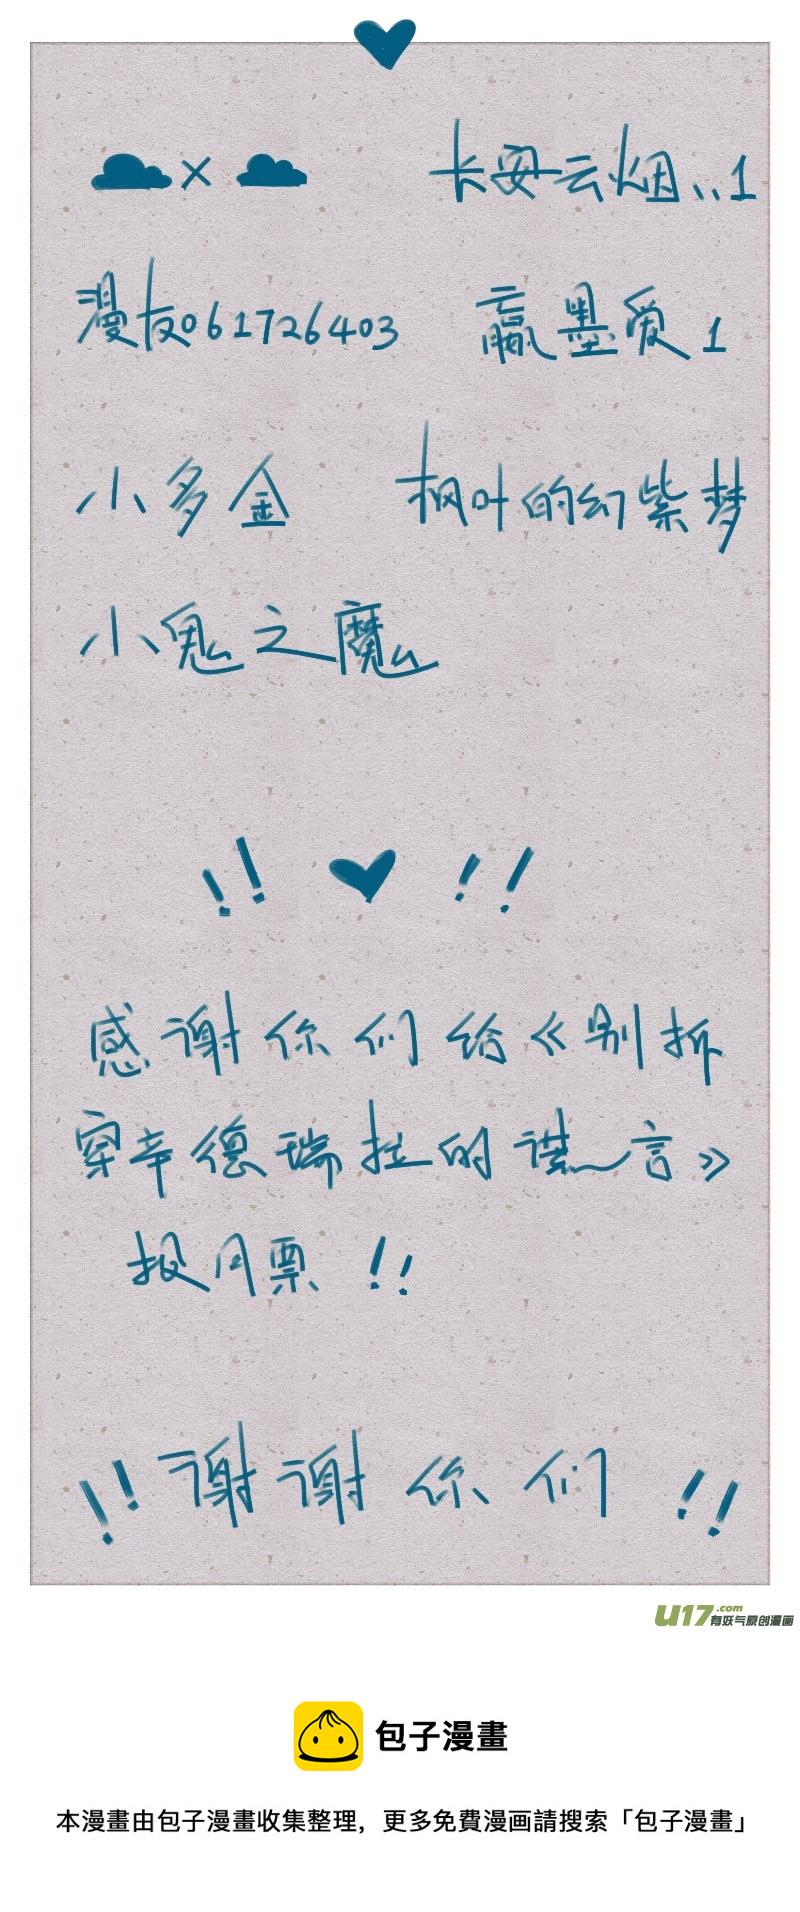 ☁×☁ 长安云烟、、、1
漫友061726403 赢墨爱1
小多金 枫叶的幻紫梦
小鬼之魔
!! ♥ !!
感谢你们给《别拆
穿辛德瑞拉的谎言》
投月票!!
!!谢谢你们!!
U17.com
有妖气原创漫画
包子漫畫
本漫畫由包子漫畫收集整理，更多免費漫画請搜索「包子漫畫」